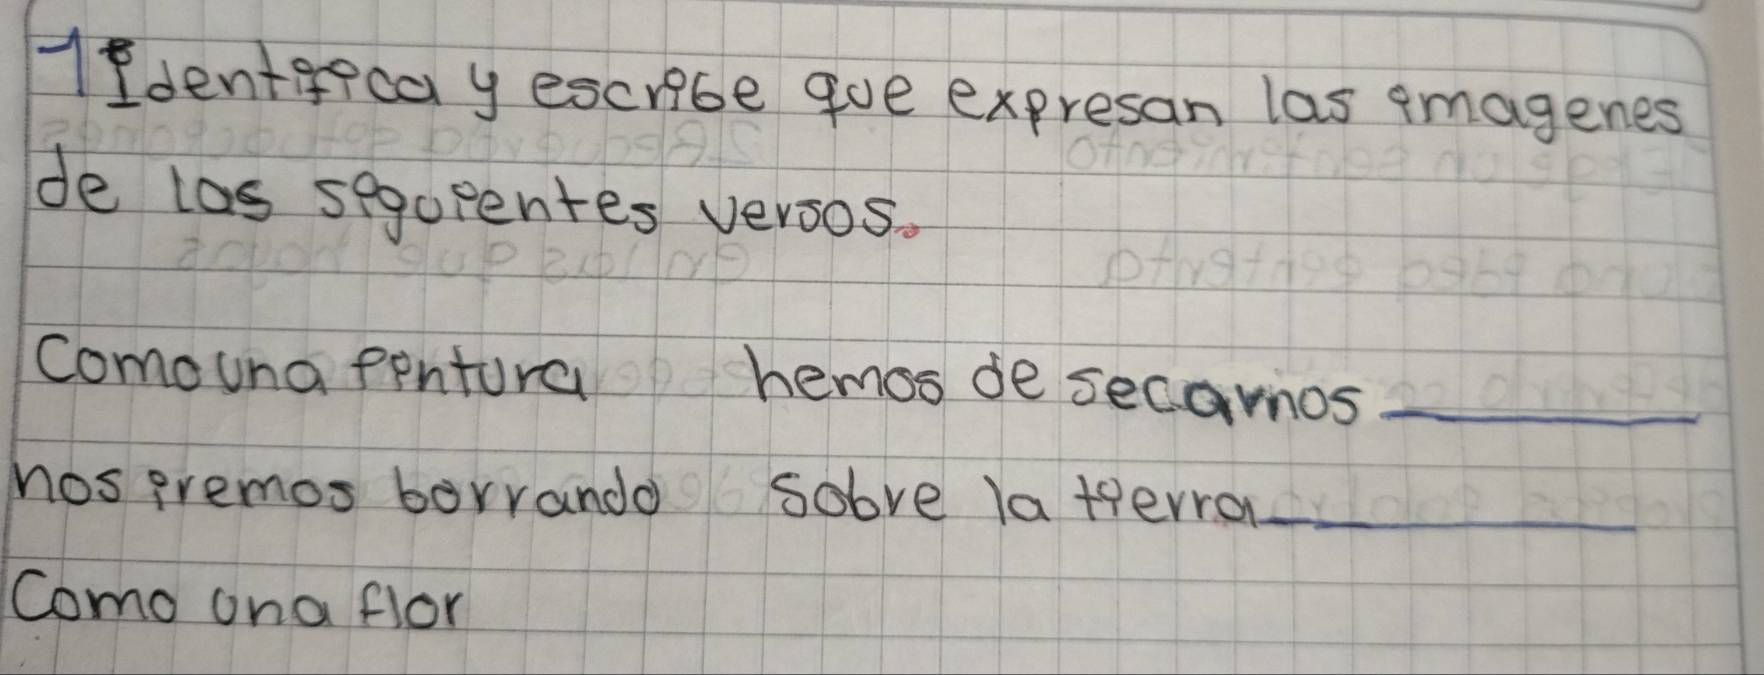 1 Identifica y escribe que expresan las imagenes
de los siguientes versos.
Como una pintura hemos de secarnos ________
nos iremos borrando sobre la tierra ________
Como una flor